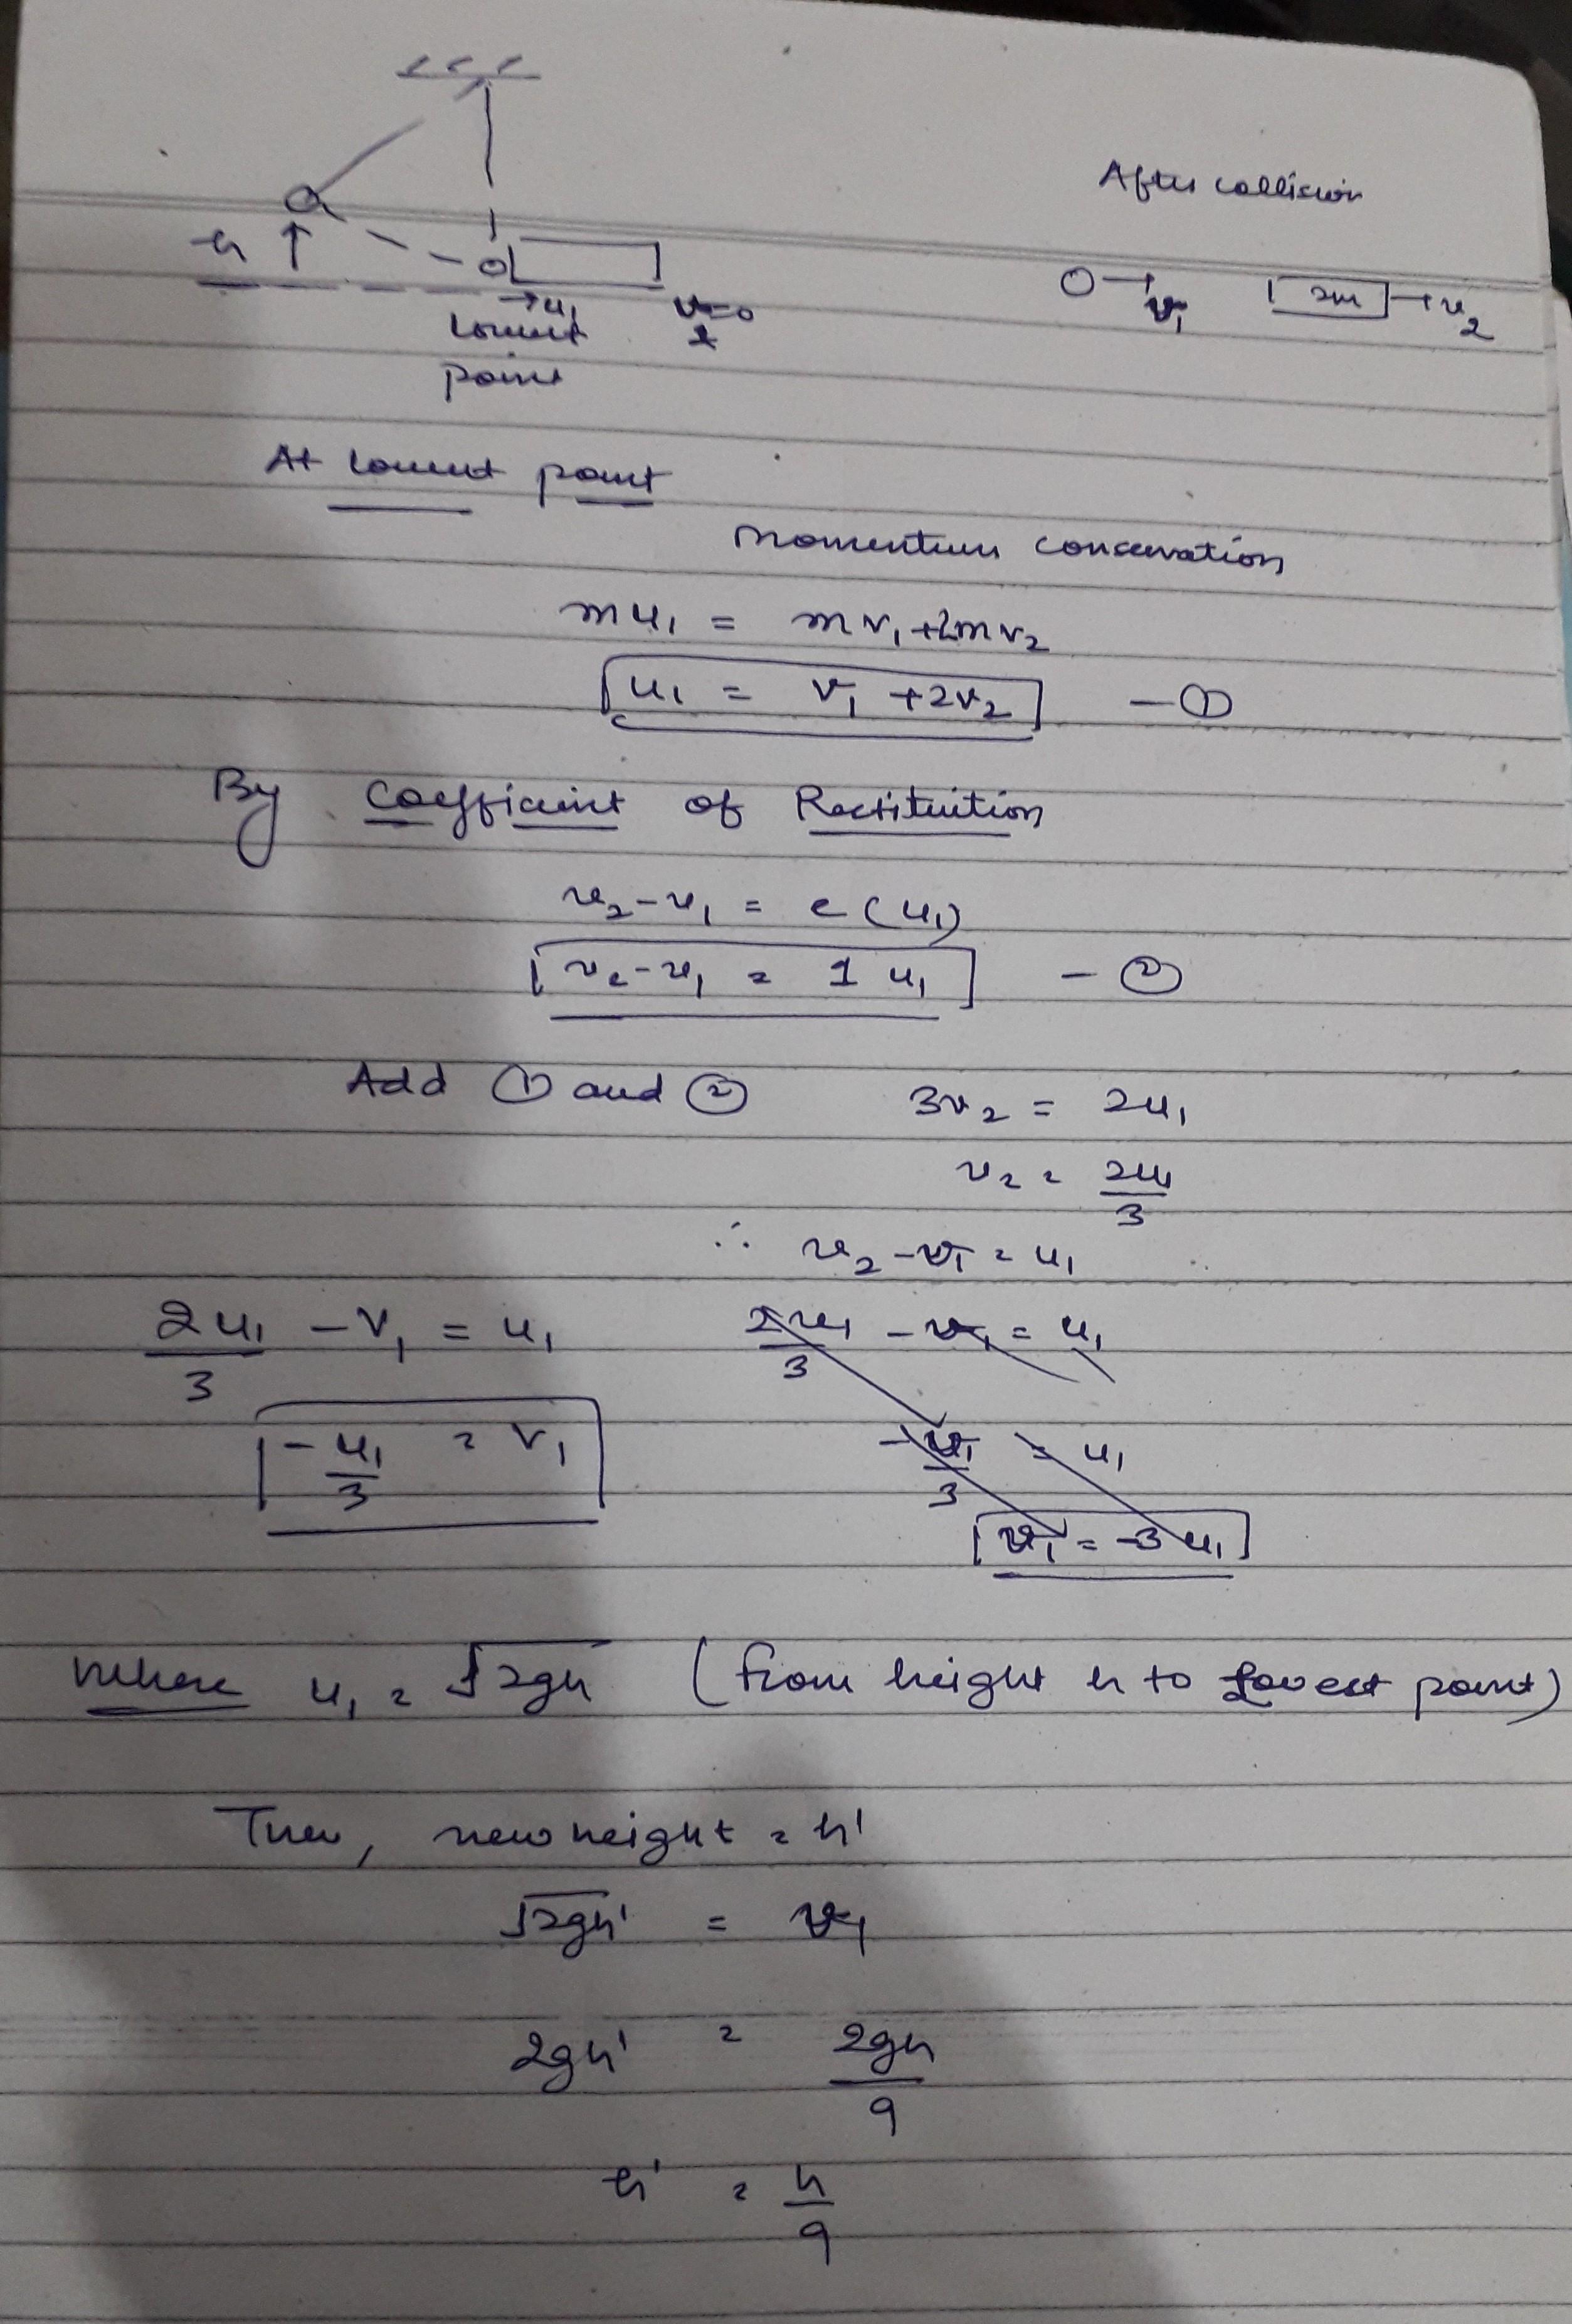 After collision
h
→u₁
v₂=0
lowest
point
v₁
2m
→v₂
At lowest point
Momentum conservation
mu₁ = mv₁+2mv₂
u₁ = v₁+2v₂ -①
By Coefficient of Restituition
v₂-v₁ = e(u₁)
v₂-v₁ = 1 u₁ -②
Add ① and ② 3v₂ = 2u₁
v₂ = 2u₁/3
∴ v₂-v₁ = u₁
2u₁/3 - v₁ = u₁ 2u₁/3 - v₁ = u₁
-u₁/3 = v₁ -v₁/3 = u₁
v₁ = -3u₁
Where u₁ = √2gh (from height h to lowest point)
Then, new height = h'
√2gh' = v₁
2gh' = 2gh/9
h' = h/9